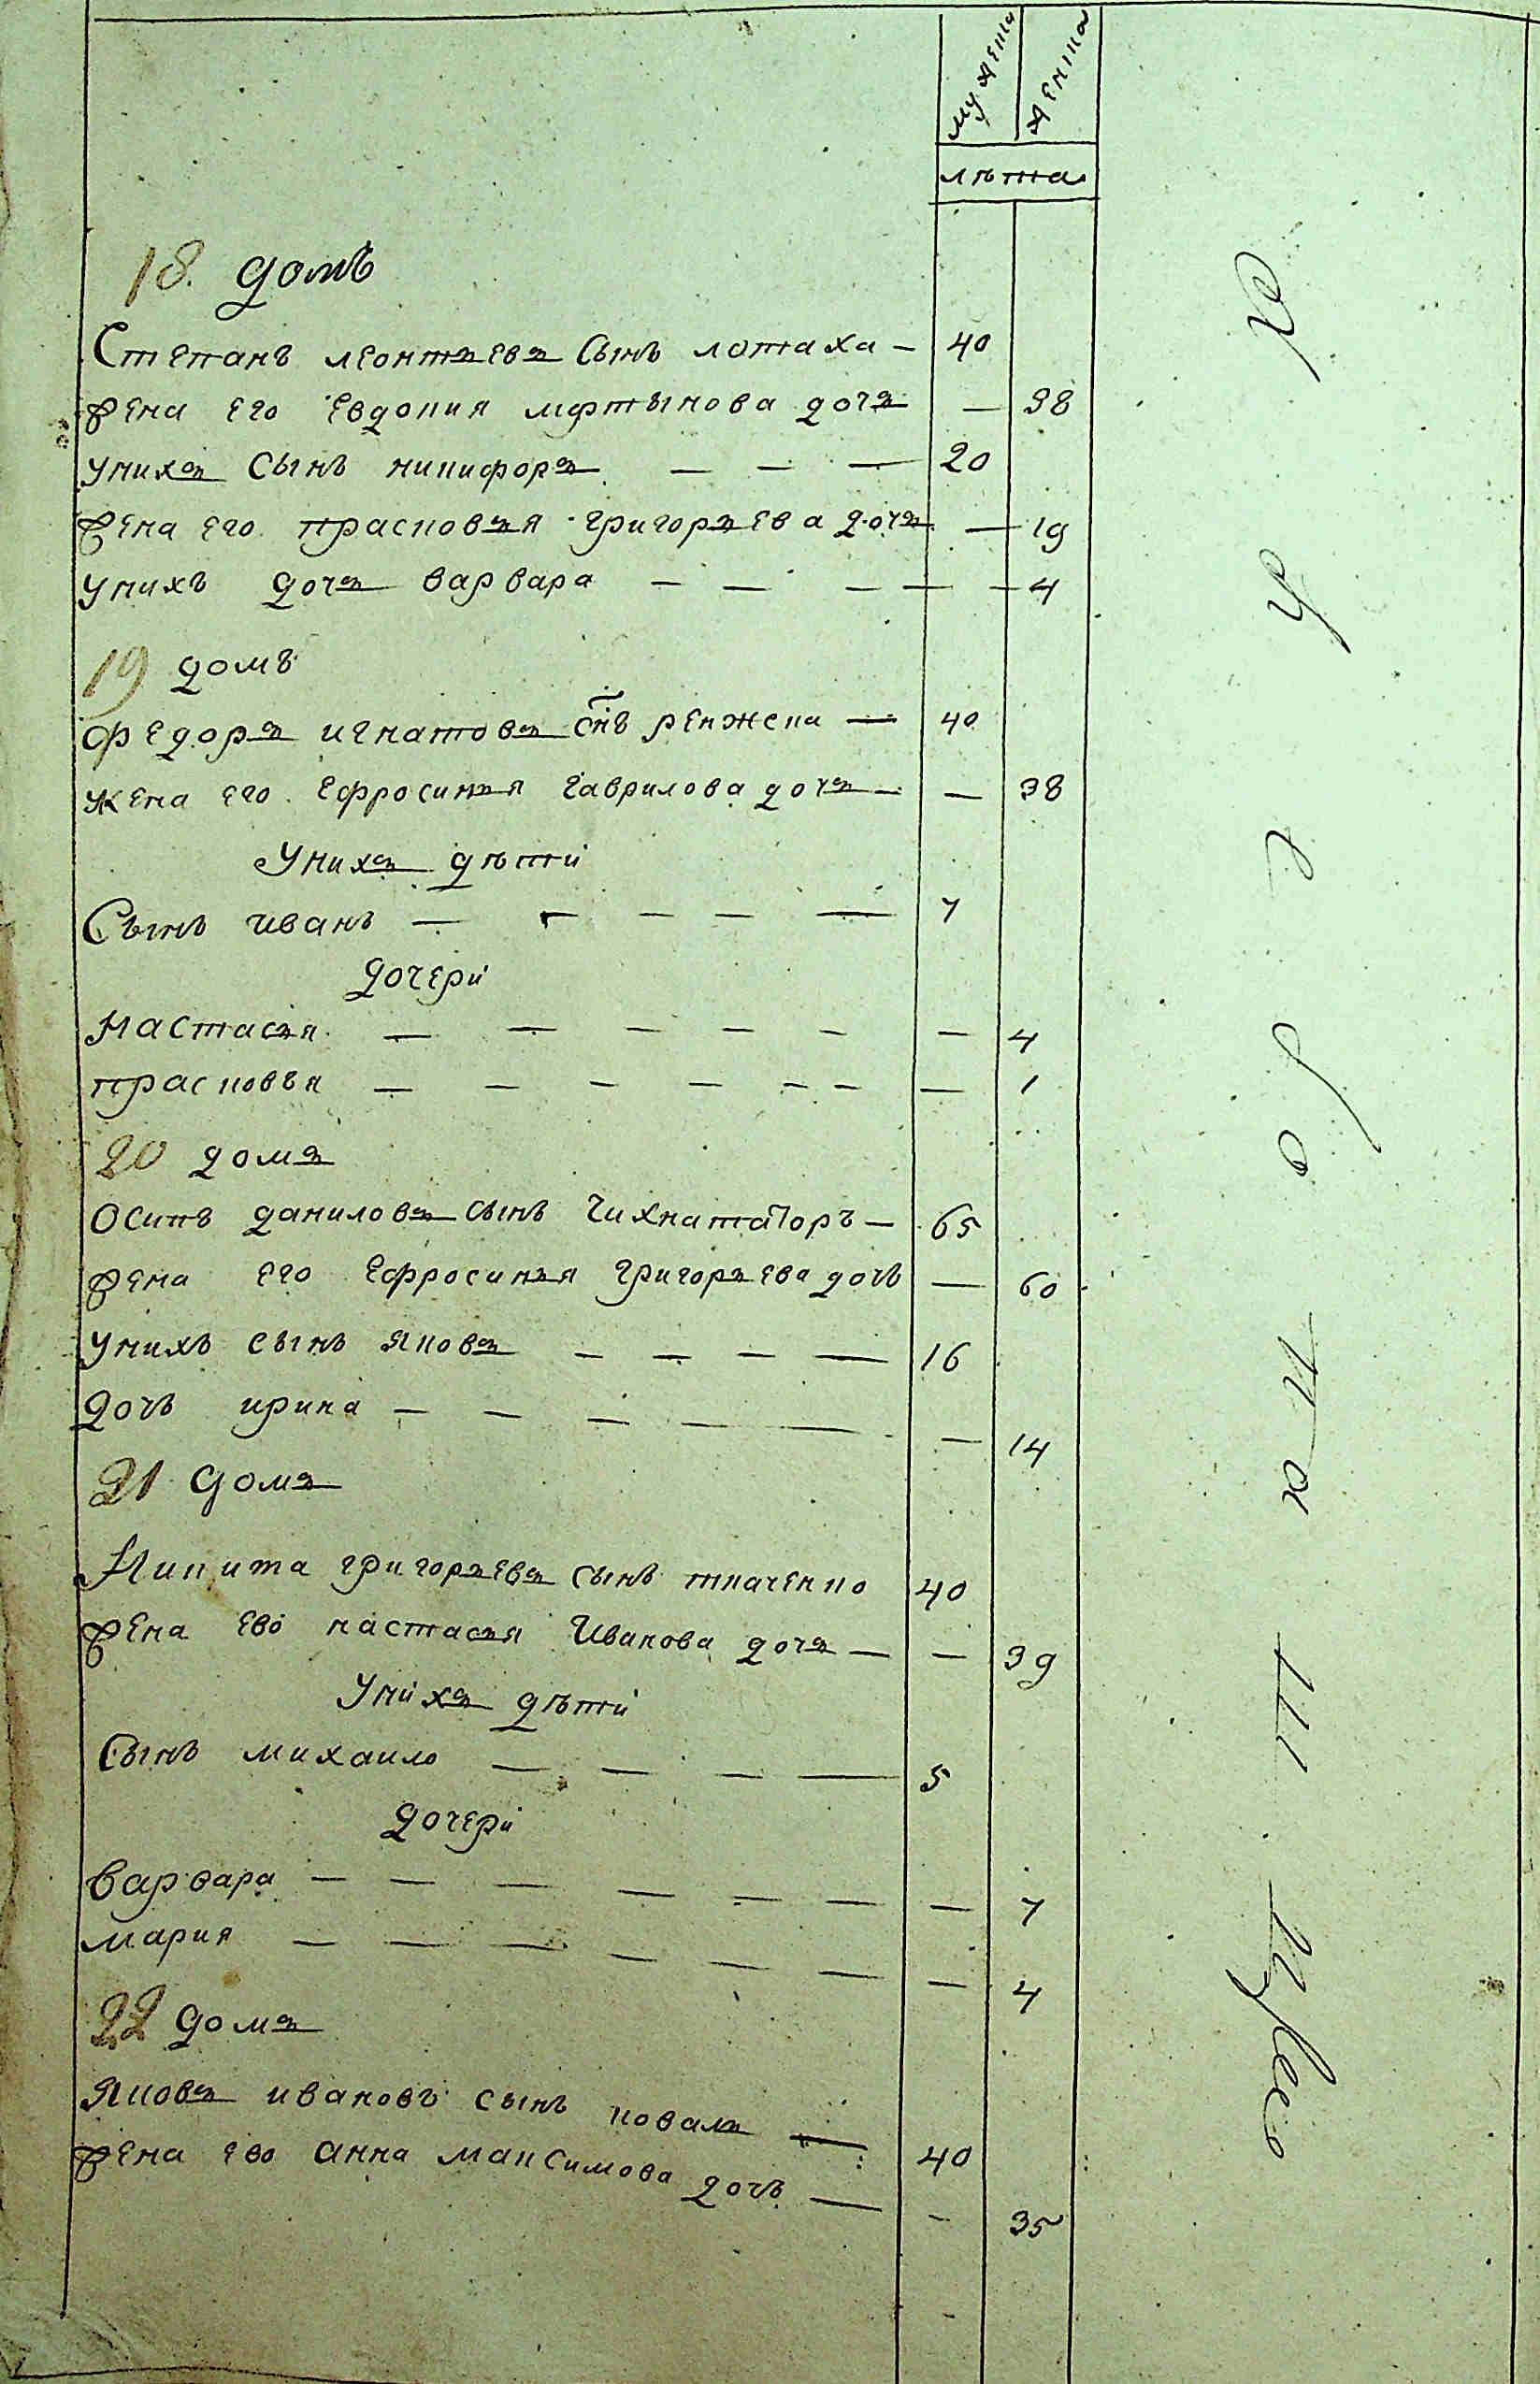 мужеска женска
лѣта
18. домъ
Степанъ леонтьевъ Сынъ лотаха - 40
жена его Евдокия мартынова дочь — 38
унихъ Сынъ никифоръ — — — 20
жена его прасковья григорьева дочь — 19
унихъ дочь варвара — — — — — 4
19 домъ
федоръ игнатовъ снъ — 40
жена его Ефросинья гаврилова дочь — — 38
Унихъ дѣтй
Сынъ иванъ — — — — — 7
дочери
Настасья — — — — — — 4
прасковья — — — — — — — 1
20 домъ
Осипъ даниловъ Сынъ — 65
жена его Ефросинья григорьева дочь — 60
унихъ сынъ яковъ — — — — 16
дочь ирина — — — — — — 14
21 домъ
Никита григорьевъ сынъ ткаченко 40
жена ево настасья Иванова дочь — — 39
Унихъ дѣтй
Сынъ михаило — — — — 5
дочери
варвара — — — — — — — 7
мария — — — — — — — 4
22 домъ
яковъ ивановъ сынъ коваль — 40
жена ево анна максимова дочь — - 35